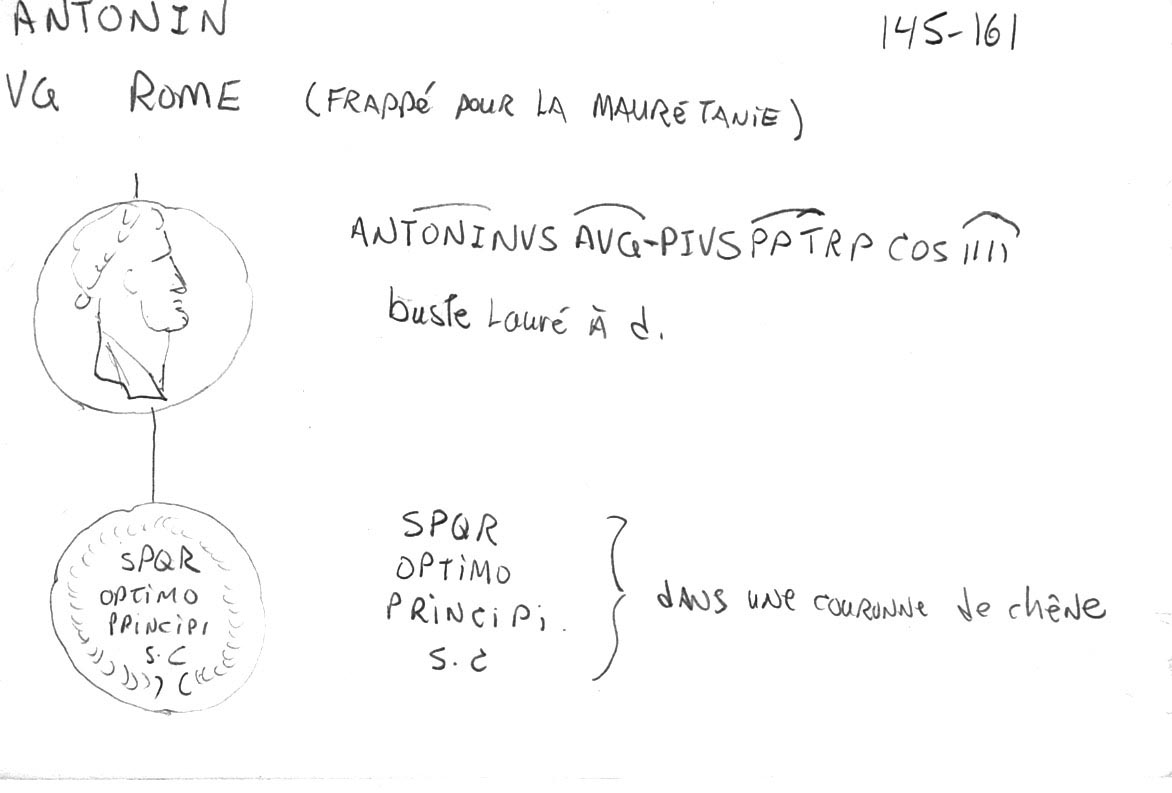 ANTONIN 145-161
VG ROME (FRAPPé POUR LA MAURéTANiE)
ANTONINVS AVG-PIVS PP TRP COS IIII
buste Lauré À d.
SPQR
OPTiMO
PRiNCiPI
S.C
SPQR
OPTiMO
PRiNCiPi.
S.C
dANS UNe COURONNe de chêNe